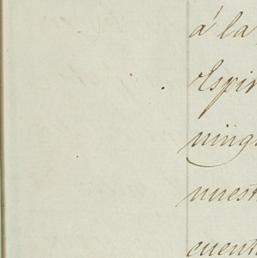 á la
Espir
ning
nuest
cuent